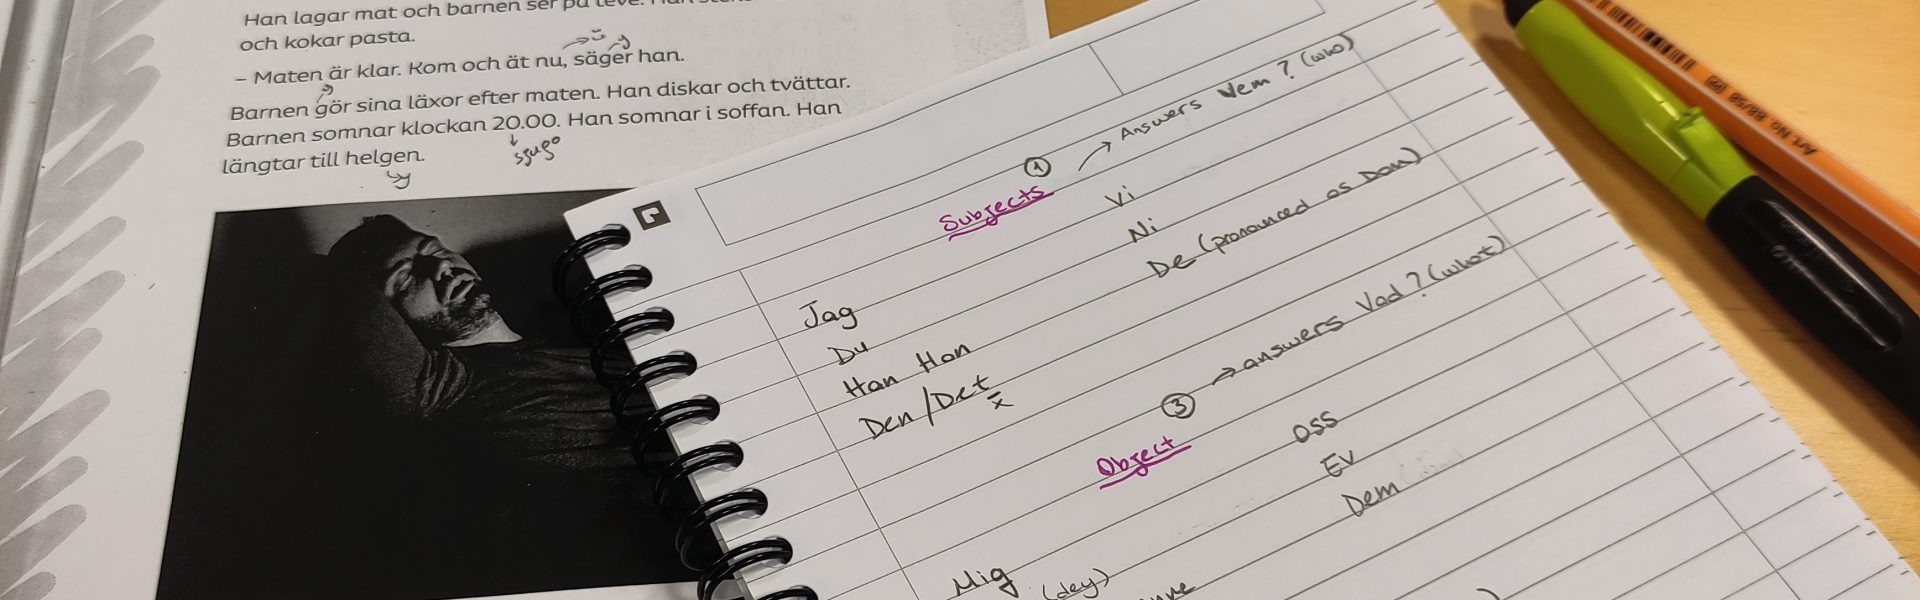 Han lagar mat och barnen ser på teve. Han
och kokar pasta.
– Maten är klar. Kom och ät nu, säger han.
Barnen gör sina läxor efter maten. Han diskar och tvättar.
Barnen somnar klockan 20.00. Han somnar i soffan. Han
längtar till helgen.
y
sjugo
y
① Subjects → Answers Vem? (who)
Jag
Du
Han Hon
Den/Det
x
Vi
Ni
De (pronounced as Dom)
③ Object → answers Vad? (what)
Mig
(dey)
oss
Ev
Dem
Art.No. 88/58